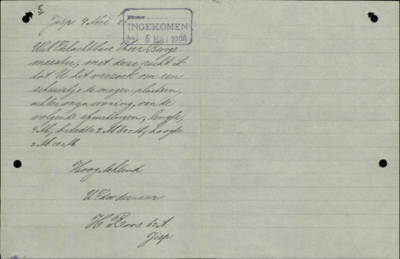 5
Jisp 4 Mei
INGEKOMEN
6 MEI 1908
WelEdelachtbare Heer Burge
meester, met deze richt ik
tot U het verzoek om een
schuurtje te mogen plaatsen,
achter mijn woning, van de
volgende afmetingen, lengte,
breedte 2 M hoogte
2 M 10 cM
Hoogachtend
UEdw dienaar
H Roos
Jisp